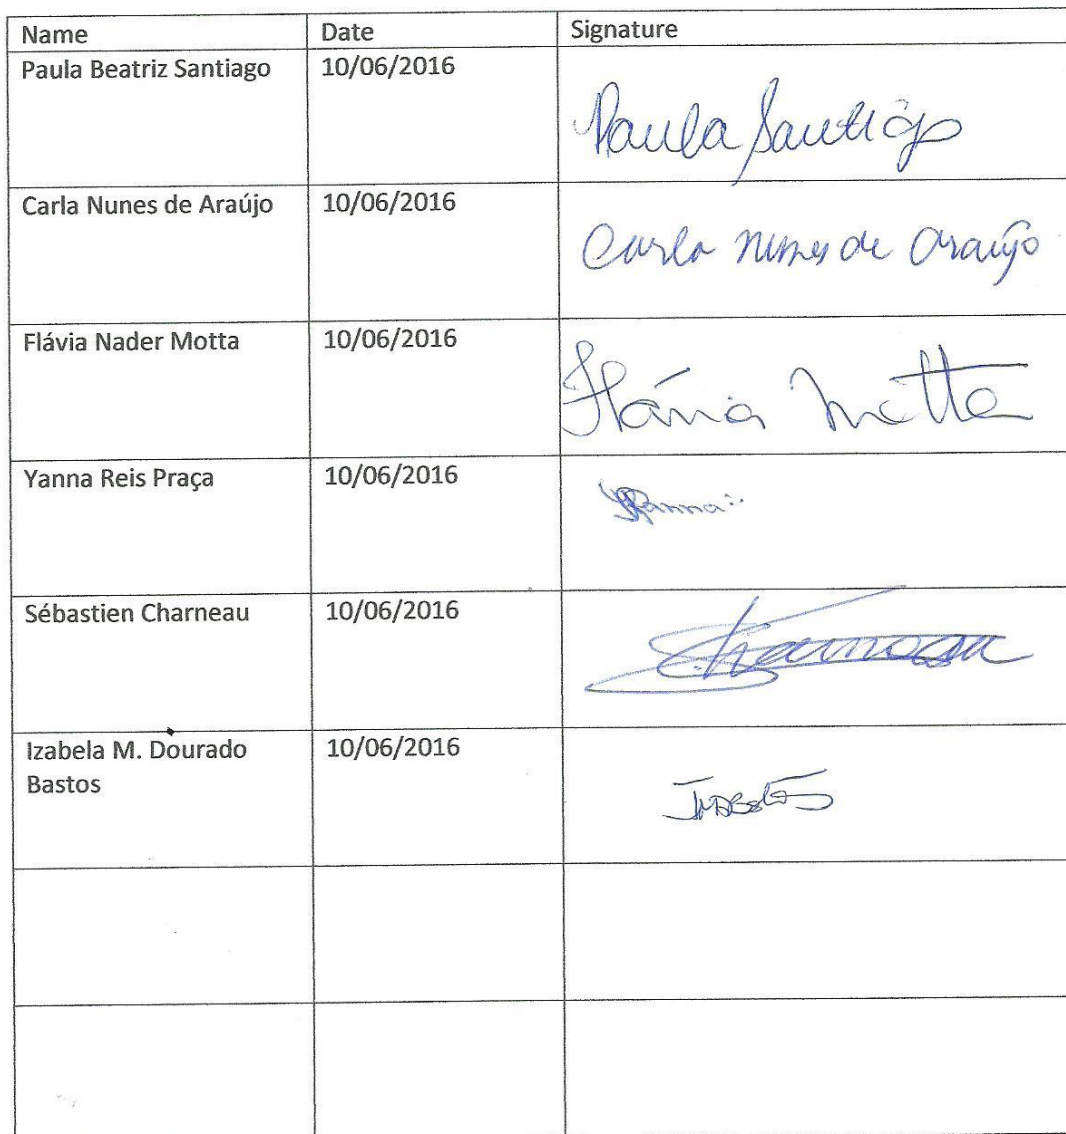 Name Date Signature
Paula Beatriz Santiago 10/06/2016
Paula Santiago
Carla Nunes de Araújo 10/06/2016
Carla Nunes de Araújo
Flávia Nader Motta 10/06/2016
Flávia Motta
Yanna Reis Praça 10/06/2016
Yanna
Sébastien Charneau 10/06/2016
Charneau
Izabela M. Dourado 10/06/2016
Bastos
IMDBastos